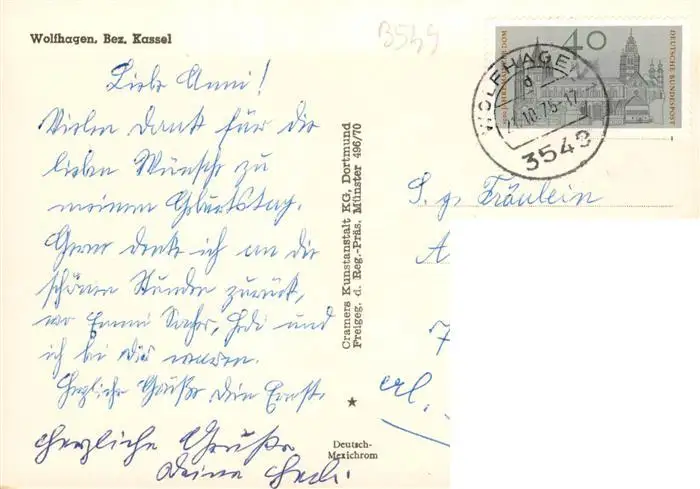 Wolfhagen, Bez. Kassel
Liebe Anni!
Vielen Dank für die
lieben Wünsche zu
meinem Geburtstag.
Gerne denke ich an die
schönen Stunden zurück,
wo Emmi, Hedi und
ich bei Dir waren.
Herzliche Grüße Dein Ernst.
Herzliche Grüße
Deine Hedi.
Cramers Kunstanstalt KG, Dortmund
Freigeg. d. Reg.-Präs. Münster 496/70
Deutsch-
Mexichrom
B549
40
DEUTSCHE BUNDESPOST
WOLFHAGE
d
.10.75-17
3549
S. g. Fräulein
A
7